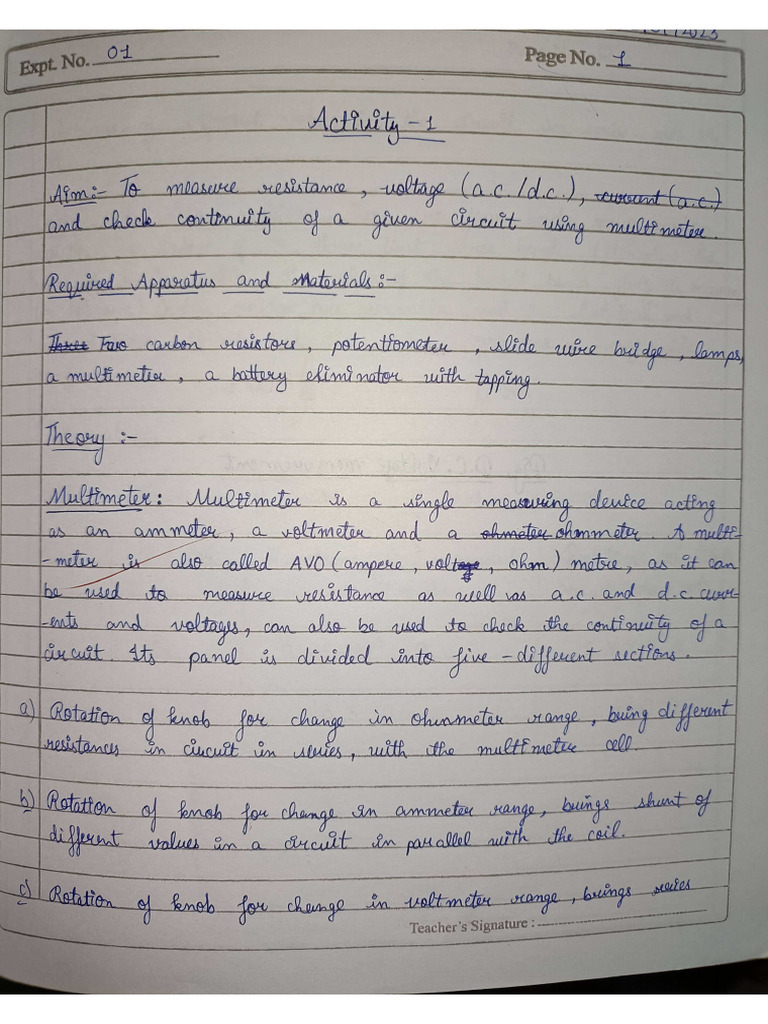 /2023
Expt. No. 01
Page No. 1
Activity - 1
Aim:- To measure resistance, voltage (a.c./d.c.), current (a.c.)
and check continuity of a given circuit using multimeter.
Required Apparatus and Materials:-
Three Two carbon resistors, potentiometer, slide wire bridge, lamps,
a multimeter, a battery eliminator with tapping.
Theory :-
Multimeter: Multimeter is a single measuring device acting
as an ammeter, a voltmeter and a ohmeter ohmmeter. A multi-
-meter is also called AVO (ampere, voltage, ohm) metre, as it can
be used to measure resistance as well as a.c. and d.c. curr-
-ents and voltages, can also be used to check the continuity of a
circuit. Its panel is divided into five-different sections.
a) Rotation of knob for change in ohmmeter range, bring different
resistances in circuit in series, with the multimeter cell.
b) Rotation of knob for change in ammeter range, brings shunt of
different values in a circuit in parallel with the coil.
c) Rotation of knob for change in voltmeter range, brings series
Teacher's Signature :